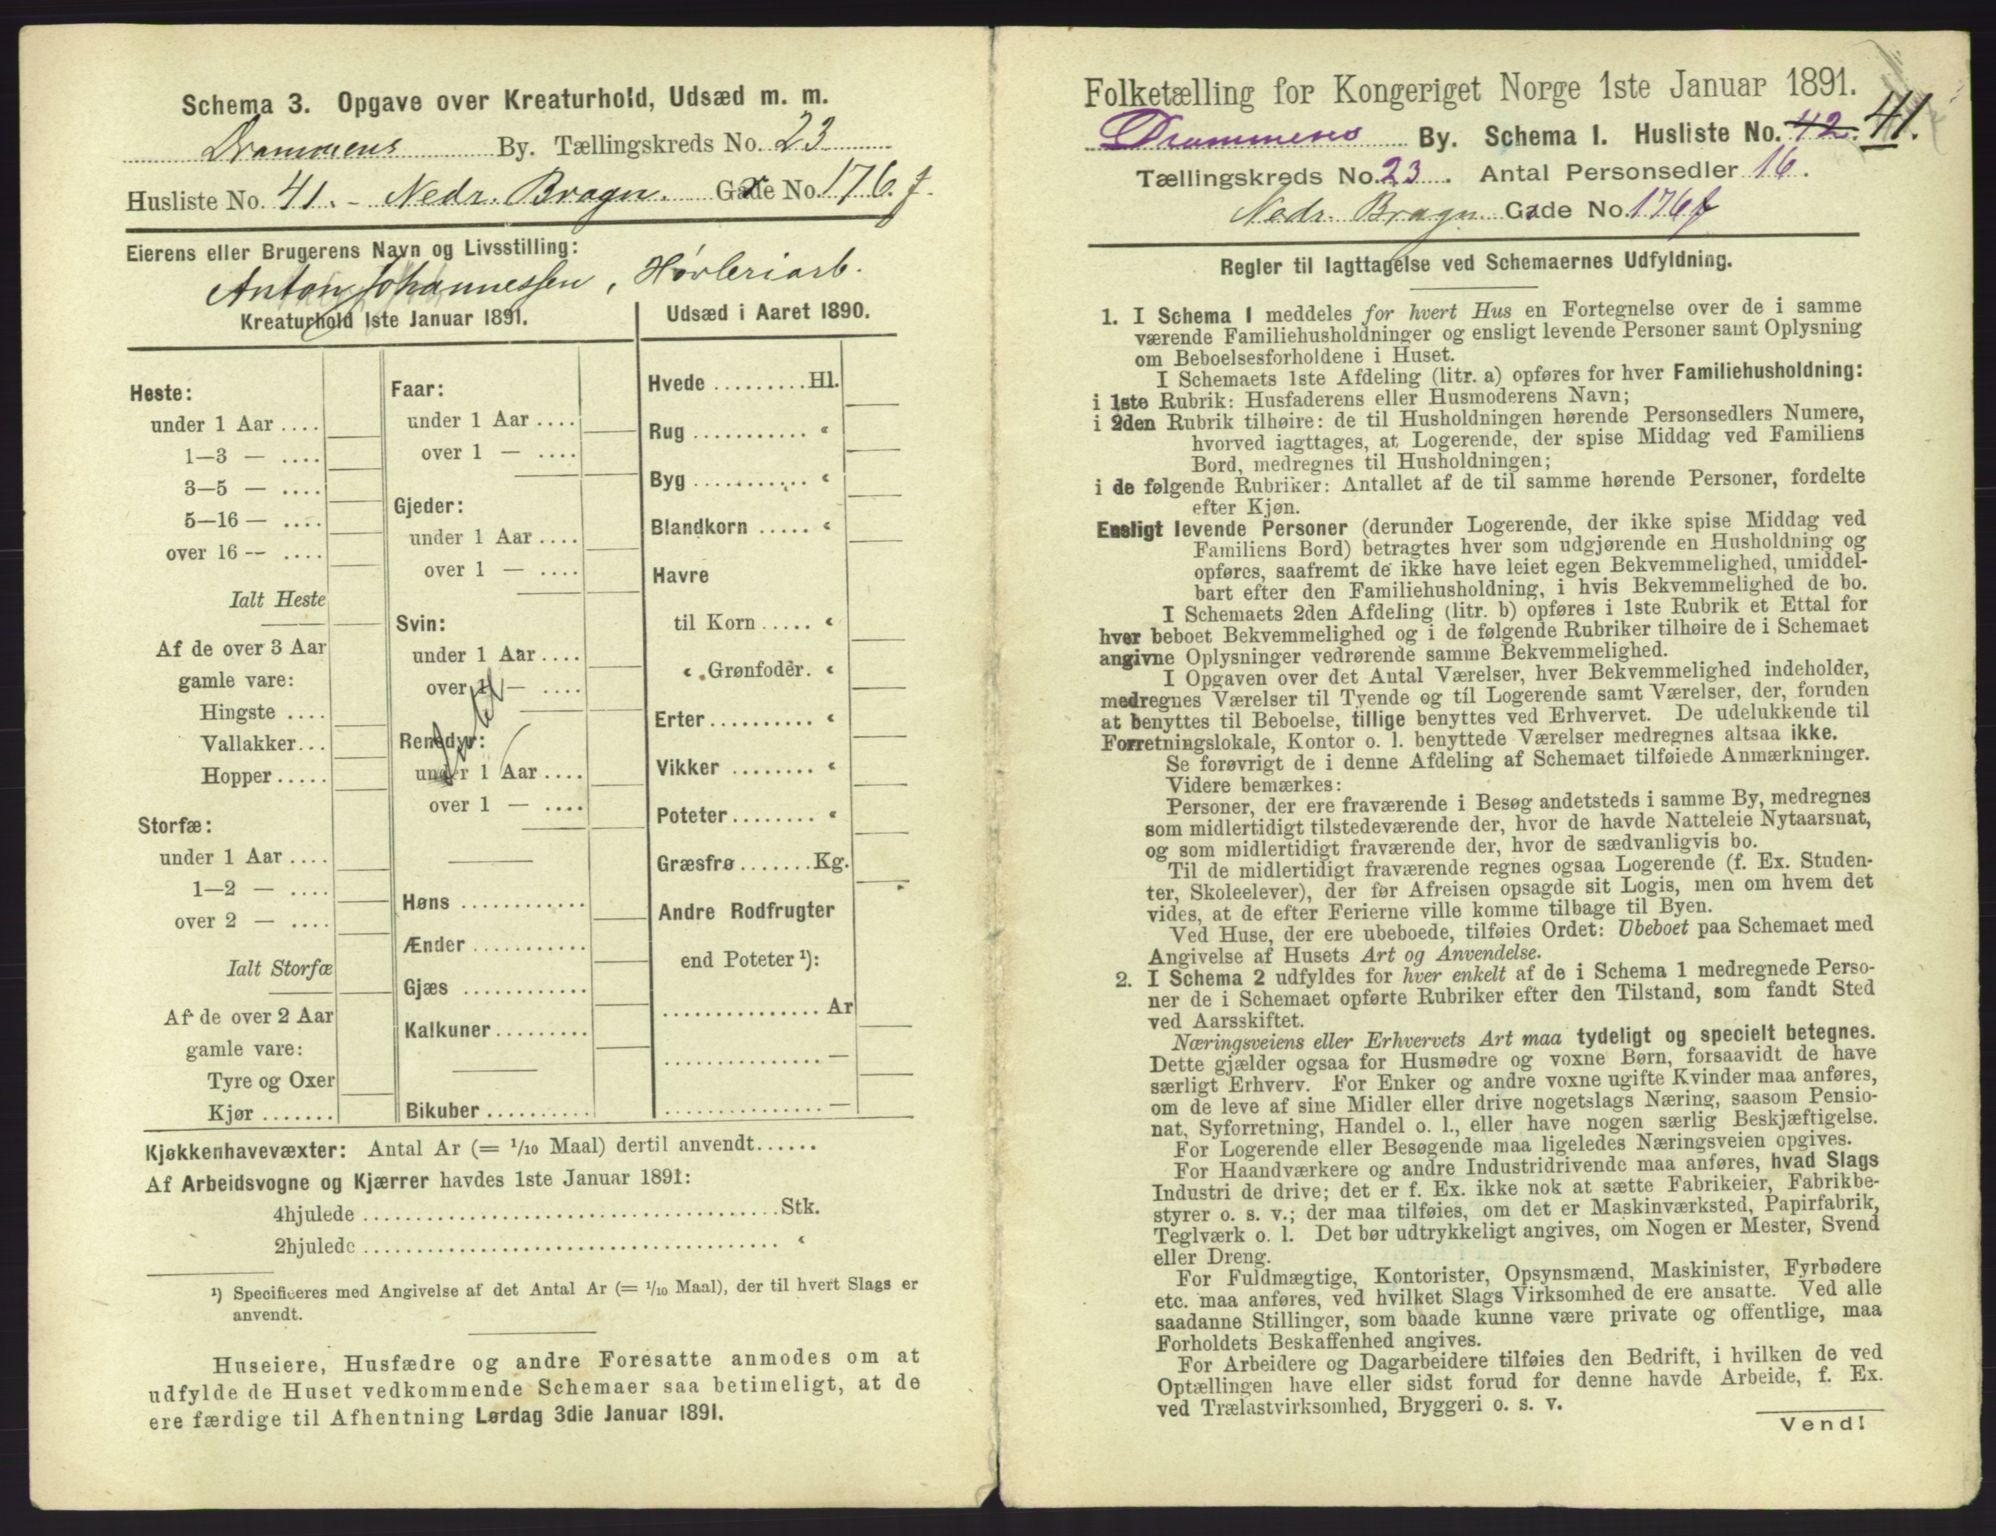 Schema 3. Opgave over Kreaturhold, Udsæd m. m.
Drammens By. Tællingskreds No. 23
Husliste No. 41. - Nedr. Bragn. Gade No. 176. f.
Eierens eller Brugerens Navn og Livsstilling:
Anton Johannessen, Høvleriarb.
Kreaturhold 1ste Januar 1891.
Heste:
under 1 Aar ....
1—3 — ....
3—5 — ....
5—16 — ....
over 16 — ....
Ialt Heste
Af de over 3 Aar
gamle vare:
Hingste ....
Vallakker...
Hopper .....
Storfæ:
under 1 Aar ....
1—2 — ....
over 2 — ....
Ialt Storfæ
Af de over 2 Aar
gamle vare:
Tyre og Oxer
Kjør .......
Faar:
under 1 Aar ....
over 1 — ....
Gjeder:
under 1 Aar ....
over 1 — ....
Svin:
under 1 Aar ....
over 1 — ....
Rensdyr:
under 1 Aar ....
over 1 — ....
Høns ............
Ænder ...........
Gjæs ............
Kalkuner.........
Bikuber ..........
Udsæd i Aaret 1890.
Hvede .........Hl.
Rug ........... “
Byg ........... “
Blandkorn ..... “
Havre
til Korn ..... “
“ Grønfoder. “
Erter.......... “
Vikker ........ “
Poteter........ “
Græsfrø .......Kg.
Andre Rodfrugter
end Poteter ¹):
............... Ar
............... —
............... —
Kjøkkenhavevæxter: Antal Ar (= 1/10 Maal) dertil anvendt......
Af Arbeidsvogne og Kjærrer havdes 1ste Januar 1891:
4hjulede ........................................Stk.
2hjulede ........................................ “
¹) Specificeres med Angivelse af det Antal Ar (= 1/10 Maal), der til hvert Slags er
anvendt.
Huseiere, Husfædre og andre Foresatte anmodes om at
udfylde de Huset vedkommende Schemaer saa betimeligt, at de
ere færdige til Afhentning Lørdag 3die Januar 1891.
Folketælling for Kongeriget Norge 1ste Januar 1891.
Drammens By. Schema 1. Husliste No. 42. 41.
Tællingskreds No. 23. Antal Personsedler 16.
Nedr. Bragn Gade No. 176 f
Regler til Iagttagelse ved Schemaernes Udfyldning.
1. I Schema 1 meddeles for hvert Hus en Fortegnelse over de i samme
værende Familiehusholdninger og ensligt levende Personer samt Oplysning
om Beboelsesforholdene i Huset.
I Schemaets 1ste Afdeling (litr. a) opføres for hver Familiehusholdning:
i 1ste Rubrik: Husfaderens eller Husmoderens Navn;
i 2den Rubrik tilhøire: de til Husholdningen hørende Personsedlers Numere,
hvorved iagttages, at Logerende, der spise Middag ved Familiens
Bord, medregnes til Husholdningen;
i de følgende Rubriker: Antallet af de til samme hørende Personer, fordelte
efter Kjøn.
Ensligt levende Personer (derunder Logerende, der ikke spise Middag ved
Familiens Bord) betragtes hver som udgjørende en Husholdning og
opføres, saafremt de ikke have leiet egen Bekvemmelighed, umiddel-
bart efter den Familiehusholdning, i hvis Bekvemmelighed de bo.
I Schemaets 2den Afdeling (litr. b) opføres i 1ste Rubrik et Ettal for
hver beboet Bekvemmelighed og i de følgende Rubriker tilhøire de i Schemaet
angivne Oplysninger vedrørende samme Bekvemmelighed.
I Opgaven over det Antal Værelser, hver Bekvemmelighed indeholder,
medregnes Værelser til Tyende og til Logerende samt Værelser, der, foruden
at benyttes til Beboelse, tillige benyttes ved Erhvervet. De udelukkende til
Forretningslokale, Kontor o. l. benyttede Værelser medregnes altsaa ikke.
Se forøvrigt de i denne Afdeling af Schemaet tilføiede Anmærkninger.
Videre bemærkes:
Personer, der ere fraværende i Besøg andetsteds i samme By, medregnes
som midlertidigt tilstedeværende der, hvor de havde Natteleie Nytaarsnat,
og som midlertidigt fraværende der, hvor de sædvanligvis bo.
Til de midlertidigt fraværende regnes ogsaa Logerende (f. Ex. Studen-
ter, Skoleelever), der før Afreisen opsagde sit Logis, men om hvem det
vides, at de efter Ferierne ville komme tilbage til Byen.
Ved Huse, der ere ubeboede, tilføies Ordet: Ubeboet paa Schemaet med
Angivelse af Husets Art og Anvendelse.
2. I Schema 2 udfyldes for hver enkelt af de i Schema 1 medregnede Perso-
ner de i Schemaet opførte Rubriker efter den Tilstand, som fandt Sted
ved Aarsskiftet.
Næringsveiens eller Erhvervets Art maa tydeligt og specielt betegnes.
Dette gjælder ogsaa for Husmødre og voxne Børn, forsaavidt de have
særligt Erhverv. For Enker og andre voxne ugifte Kvinder maa anføres,
om de leve af sine Midler eller drive nogetslags Næring, saasom Pensio-
nat, Syforretning, Handel o. l., eller have nogen særlig Beskjæftigelse.
For Logerende eller Besøgende maa ligeledes Næringsveien opgives.
For Haandværkere og andre Industridrivende maa anføres, hvad Slags
Industri de drive; det er f. Ex. ikke nok at sætte Fabrikeier, Fabrikbe-
styrer o. s. v.; der maa tilføies, om det er Maskinværksted, Papirfabrik,
Teglværk o. l. Det bør udtrykkeligt angives, om Nogen er Mester, Svend
eller Dreng.
For Fuldmægtige, Kontorister, Opsynsmænd, Maskinister, Fyrbødere
etc. maa anføres, ved hvilket Slags Virksomhed de ere ansatte. Ved alle
saadanne Stillinger, som baade kunne være private og offentlige, maa
Forholdets Beskaffenhed angives.
For Arbeidere og Dagarbeidere tilføies den Bedrift, i hvilken de ved
Optællingen have eller sidst forud for denne havde Arbeide, f. Ex.
ved Trælastvirksomhed, Bryggeri o. s. v.
Vend!